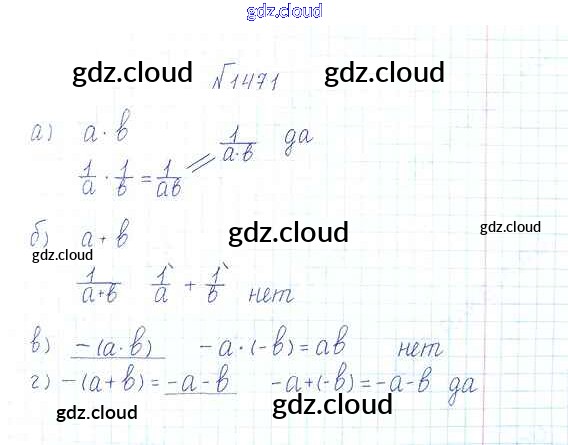 gdz.cloud
gdz.cloud №1471 gdz.cloud
а) a · b 1/(a·b) да
1/a · 1/b = 1/ab
б) a + b gdz.cloud gdz.cloud
gdz.cloud
1/(a+b) 1/a + 1/b нет
в) -(a · b) -a · (-b) = ab нет
г) -(a + b) = -a - b -a+(-b) = -a-b да
gdz.cloud gdz.cloud